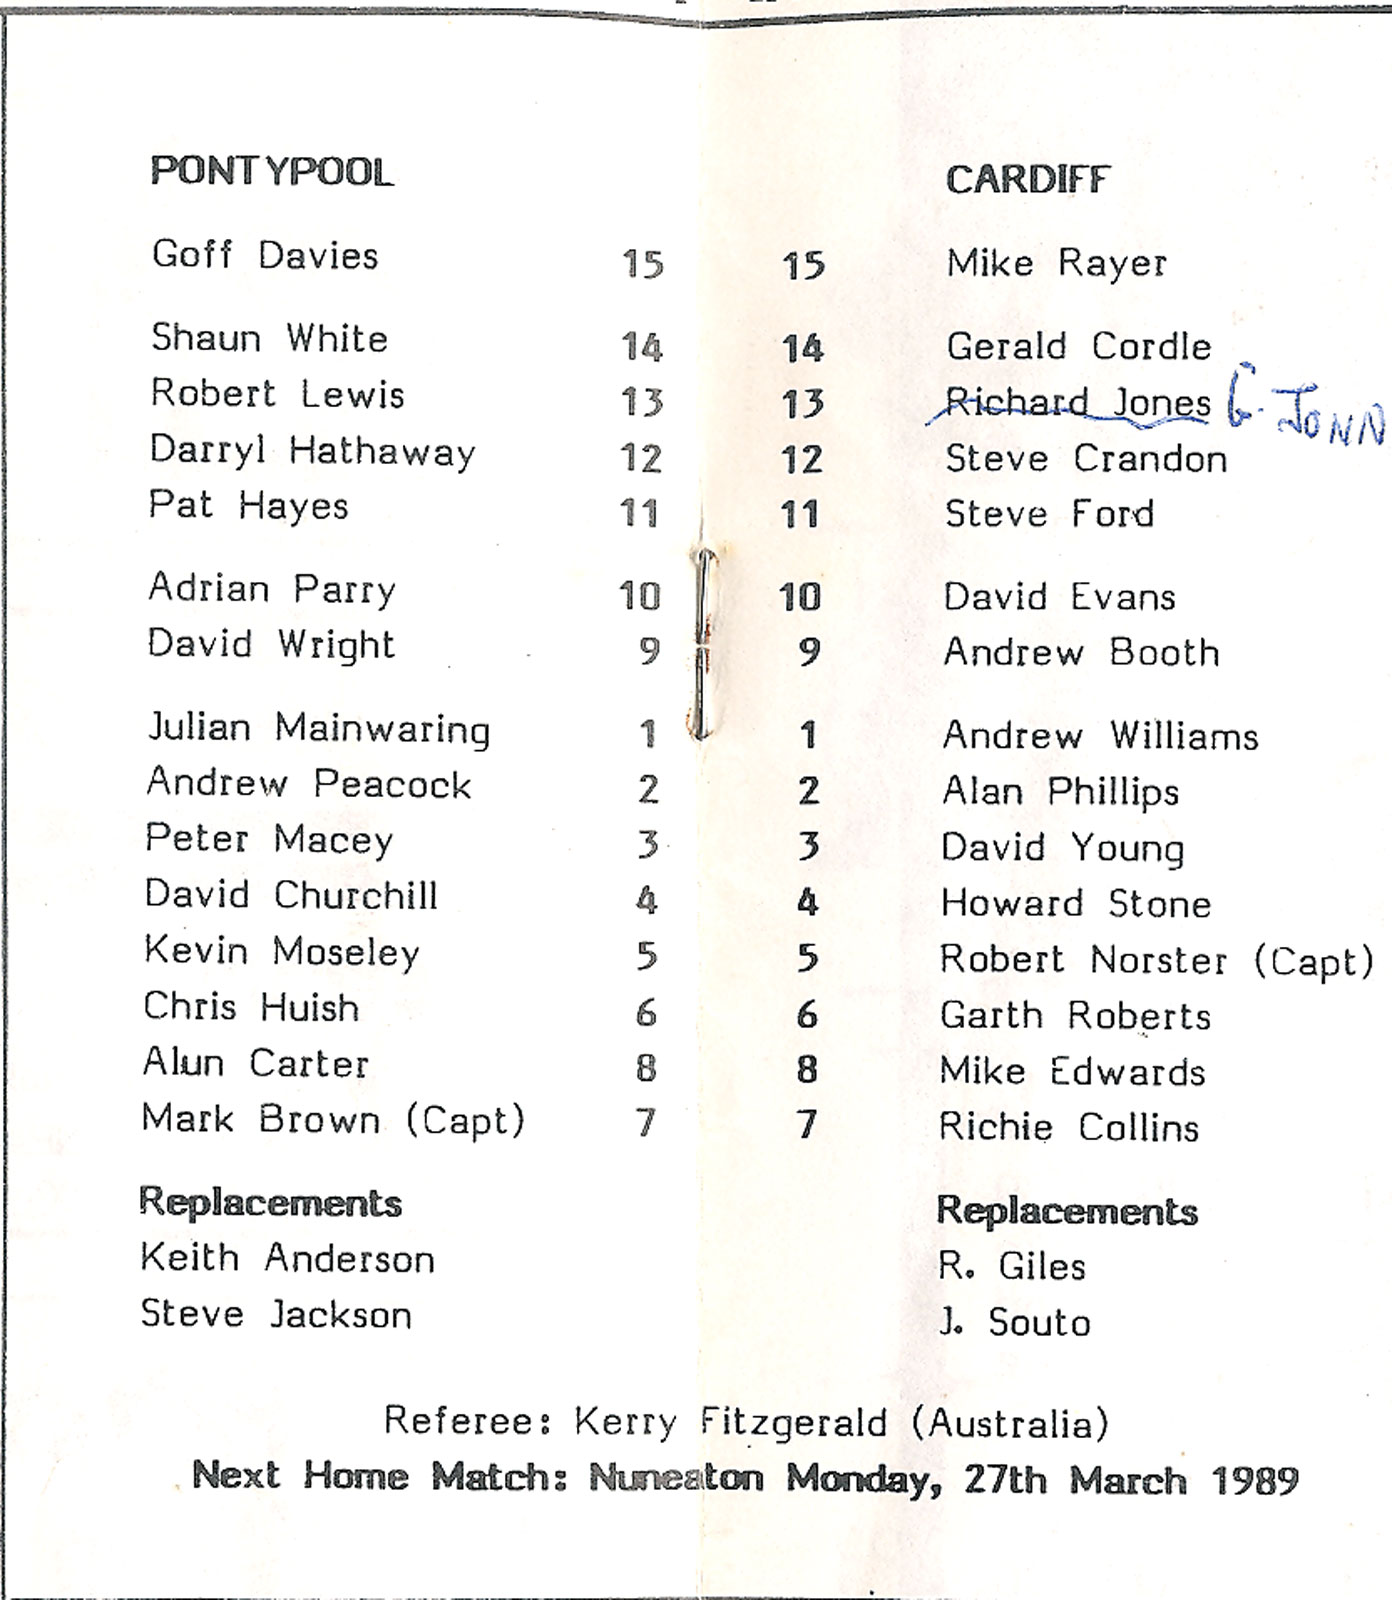 PONTYPOOL CARDIFF
Goff Davies 15 15 Mike Rayer
Shaun White 14 14 Gerald Cordle
Robert Lewis 13 13 Richard Jones G. JONN
Darryl Hathaway 12 12 Steve Crandon
Pat Hayes 11 11 Steve Ford
Adrian Parry 10 10 David Evans
David Wright 9 9 Andrew Booth
Julian Mainwaring 1 1 Andrew Williams
Andrew Peacock 2 2 Alan Phillips
Peter Macey 3 3 David Young
David Churchill 4 4 Howard Stone
Kevin Moseley 5 5 Robert Norster (Capt)
Chris Huish 6 6 Garth Roberts
Alun Carter 8 8 Mike Edwards
Mark Brown (Capt) 7 7 Richie Collins
Replacements Replacements
Keith Anderson R. Giles
Steve Jackson J. Souto
Referee: Kerry Fitzgerald (Australia)
Next Home Match: Nuneaton Monday, 27th March 1989